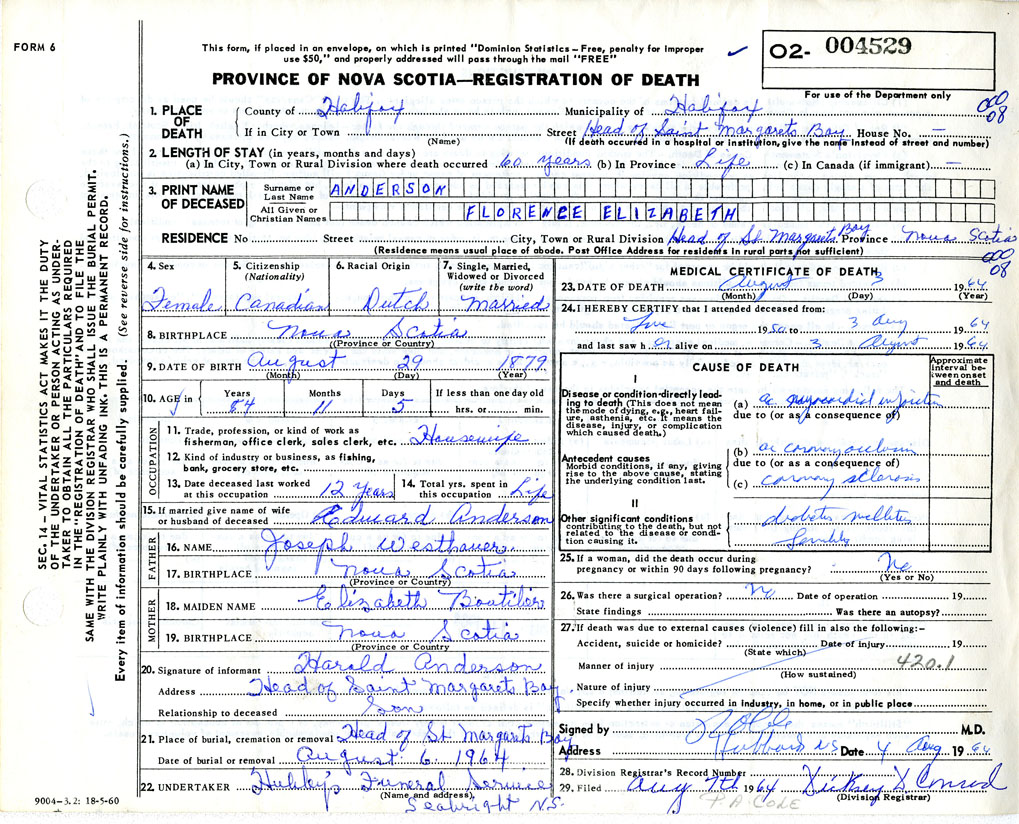 FORM 6
This form, if placed in an envelope, on which is printed "Dominion Statistics – Free, penalty for improper
use $50," and properly addressed will pass through the mail "FREE"
PROVINCE OF NOVA SCOTIA—REGISTRATION OF DEATH
02- 004529
For use of the Department only
000
08
1. PLACE OF DEATH
County of Halifax Municipality of Halifax
If in City or Town (Name) Street Head of Saint Margarets Bay House No. —
(If death occurred in a hospital or institution, give the name instead of street and number)
2. LENGTH OF STAY (in years, months and days)
(a) In City, Town or Rural Division where death occurred 60 years (b) In Province Life (c) In Canada (if immigrant) —
3. PRINT NAME OF DECEASED
Surname or Last Name ANDERSON
All Given or Christian Names FLORENCE ELIZABETH
RESIDENCE No Street City, Town or Rural Division Head of St. Margarets Bay Province Nova Scotia
(Residence means usual place of abode. Post Office Address for residents in rural parts not sufficient)
000
08
4. Sex Female
5. Citizenship (Nationality) Canadian
6. Racial Origin Dutch
7. Single, Married, Widowed or Divorced (write the word) Married
8. BIRTHPLACE Nova Scotia
(Province or Country)
9. DATE OF BIRTH August 29 1879
(Month) (Day) (Year)
10. AGE in Years 84 Months 11 Days 5 If less than one day old hrs. or min.
OCCUPATION
11. Trade, profession, or kind of work as
fisherman, office clerk, sales clerk, etc. Housewife
12. Kind of industry or business, as fishing,
bank, grocery store, etc.
13. Date deceased last worked at this occupation 12 Years
14. Total yrs. spent in this occupation Life
15. If married give name of wife or husband of deceased Edward Anderson
FATHER
16. NAME Joseph Westhaver
17. BIRTHPLACE Nova Scotia
(Province or Country)
MOTHER
18. MAIDEN NAME Elizabeth Boutilier
19. BIRTHPLACE Nova Scotia
(Province or Country)
20. Signature of informant Harold Anderson
Address Head of Saint Margarets Bay
Relationship to deceased Son
21. Place of burial, cremation or removal Head of St. Margarets Bay
Date of burial or removal August 6 1964
22. UNDERTAKER Funeral Service
(Name and address)
Seabright N.S.
9004-3.2: 18-5-60
MEDICAL CERTIFICATE OF DEATH
23. DATE OF DEATH August 3 1964
(Month) (Day) (Year)
24. I HEREBY CERTIFY that I attended deceased from:
19 to 3 Aug 1964
and last saw her alive on 3 August 1964
CAUSE OF DEATH
Approximate interval between onset and death
I
Disease or condition directly leading to death (This does not mean the mode of dying, e.g., heart failure, asthenia, etc. It means the disease, injury, or complication which caused death.)
(a) ac myocardial
due to (or as a consequence of)
Antecedent causes
Morbid conditions, if any, giving rise to the above cause, stating the underlying condition last.
(b) ac coronary occlusion
due to (or as a consequence of)
(c) coronary sclerosis
II
Other significant conditions
contributing to the death, but not related to the disease or condition causing it.
diabetes mellitus
25. If a woman, did the death occur during
pregnancy or within 90 days following pregnancy? No
(Yes or No)
26. Was there a surgical operation? No Date of operation 19
State findings Was there an autopsy?
27. If death was due to external causes (violence) fill in also the following:–
Accident, suicide or homicide? Date of injury 19
(State which)
420.1
Manner of injury
(How sustained)
Nature of injury
Specify whether injury occurred in industry, in home, or in public place
Signed by M.D.
Address Hubbards NS Date 4 Aug 1964
28. Division Registrar's Record Number
29. Filed Aug 7th 1964 D Conrod
(Division Registrar)
P.A. COLE
SEC. 14. VITAL STATISTICS ACT MAKES IT THE DUTY
OF THE UNDERTAKER OR PERSON ACTING AS UNDERTAKER
TO OBTAIN ALL THE PARTICULARS REQUIRED
IN THE "REGISTRATION OF DEATH" AND TO FILE THE
SAME WITH THE DIVISION REGISTRAR WHO SHALL ISSUE THE BURIAL PERMIT.
WRITE PLAINLY WITH UNFADING INK. THIS IS A PERMANENT RECORD.
Every item of information should be carefully supplied. (See reverse side for instructions.)